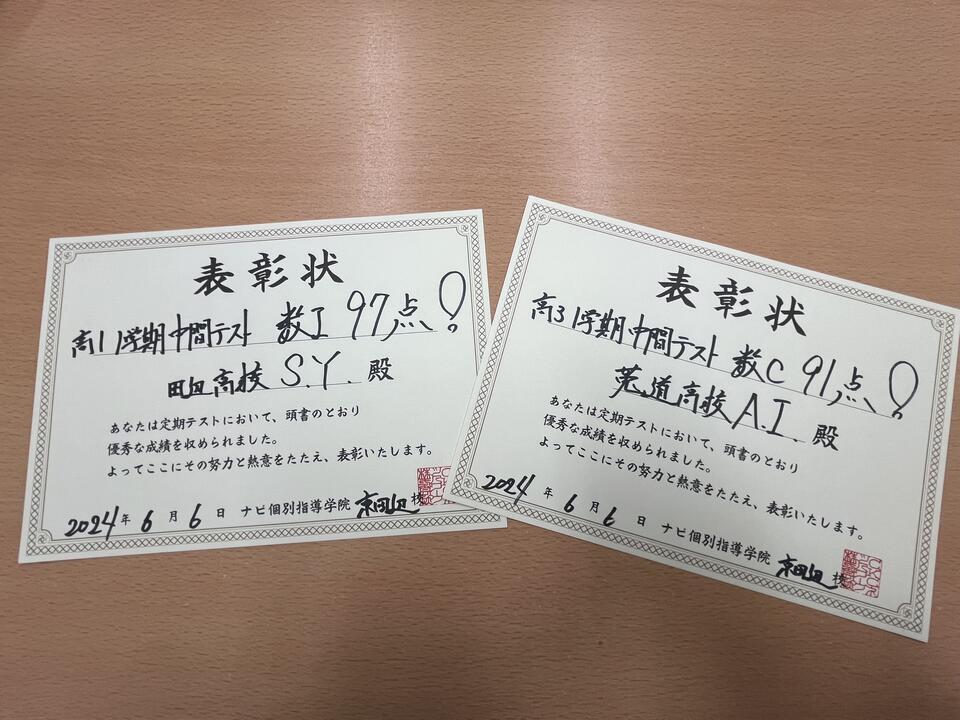 表彰状
高1 1学期中間テスト 数I 97点!
田辺高校 S.Y. 殿
あなたは定期テストにおいて、頭書のとおり
優秀な成績を収められました。
よってここにその努力と熱意をたたえ、表彰いたします。
2024年 6月 6日 ナビ個別指導学院 京田辺 校
表彰状
高3 1学期中間テスト 数C 91点!
莵道高校 A.I. 殿
あなたは定期テストにおいて、頭書のとおり
優秀な成績を収められました。
よってここにその努力と熱意をたたえ、表彰いたします。
2024年 6月 6日 ナビ個別指導学院 京田辺 校